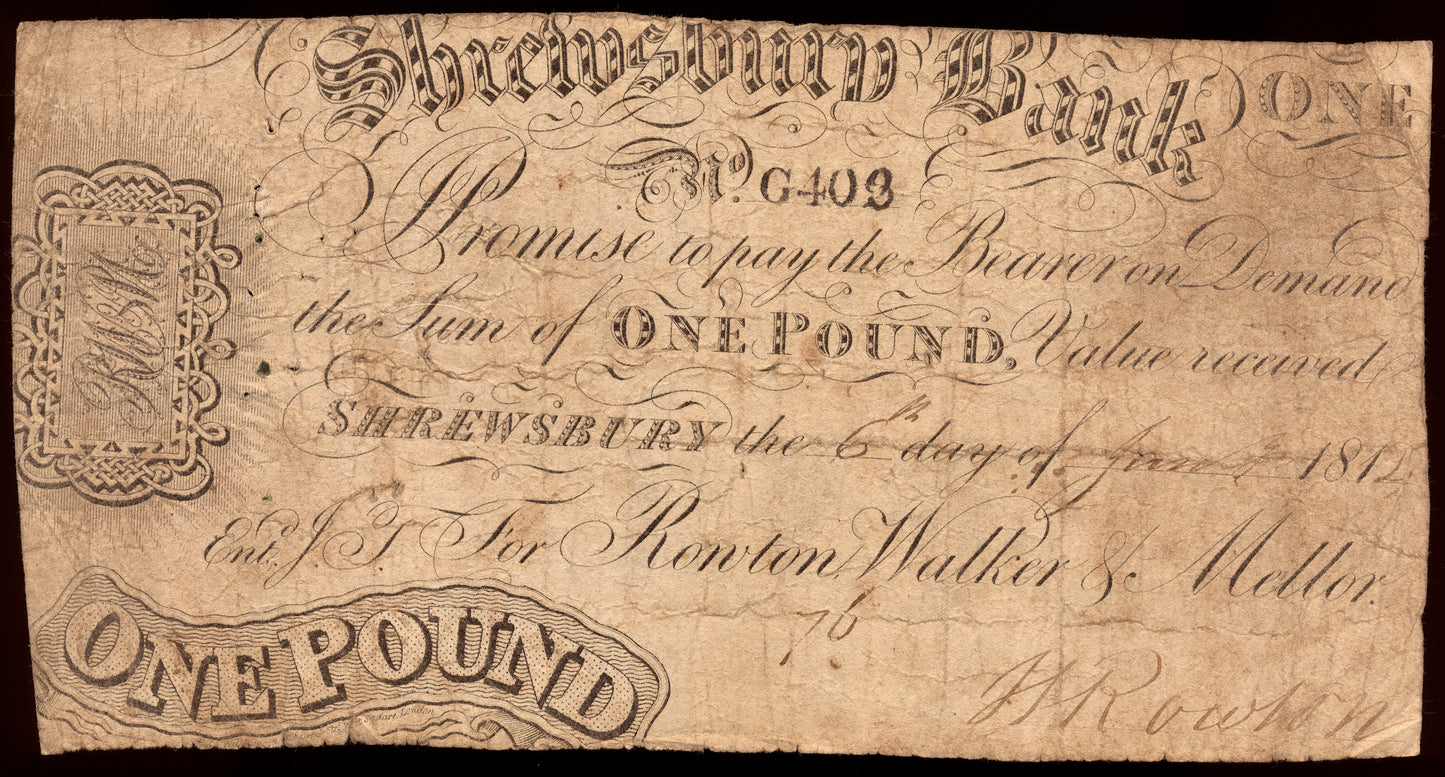 Shrewsbury Bank
ONE
No. G403
I Promise to pay the Bearer on Demand
the Sum of ONE POUND, Value received
SHREWSBURY the 6th day of 1812
Entd. J. T. For Rowton, Walker & Mellor.
RW&M
76
ONE POUND
London
W Rowton